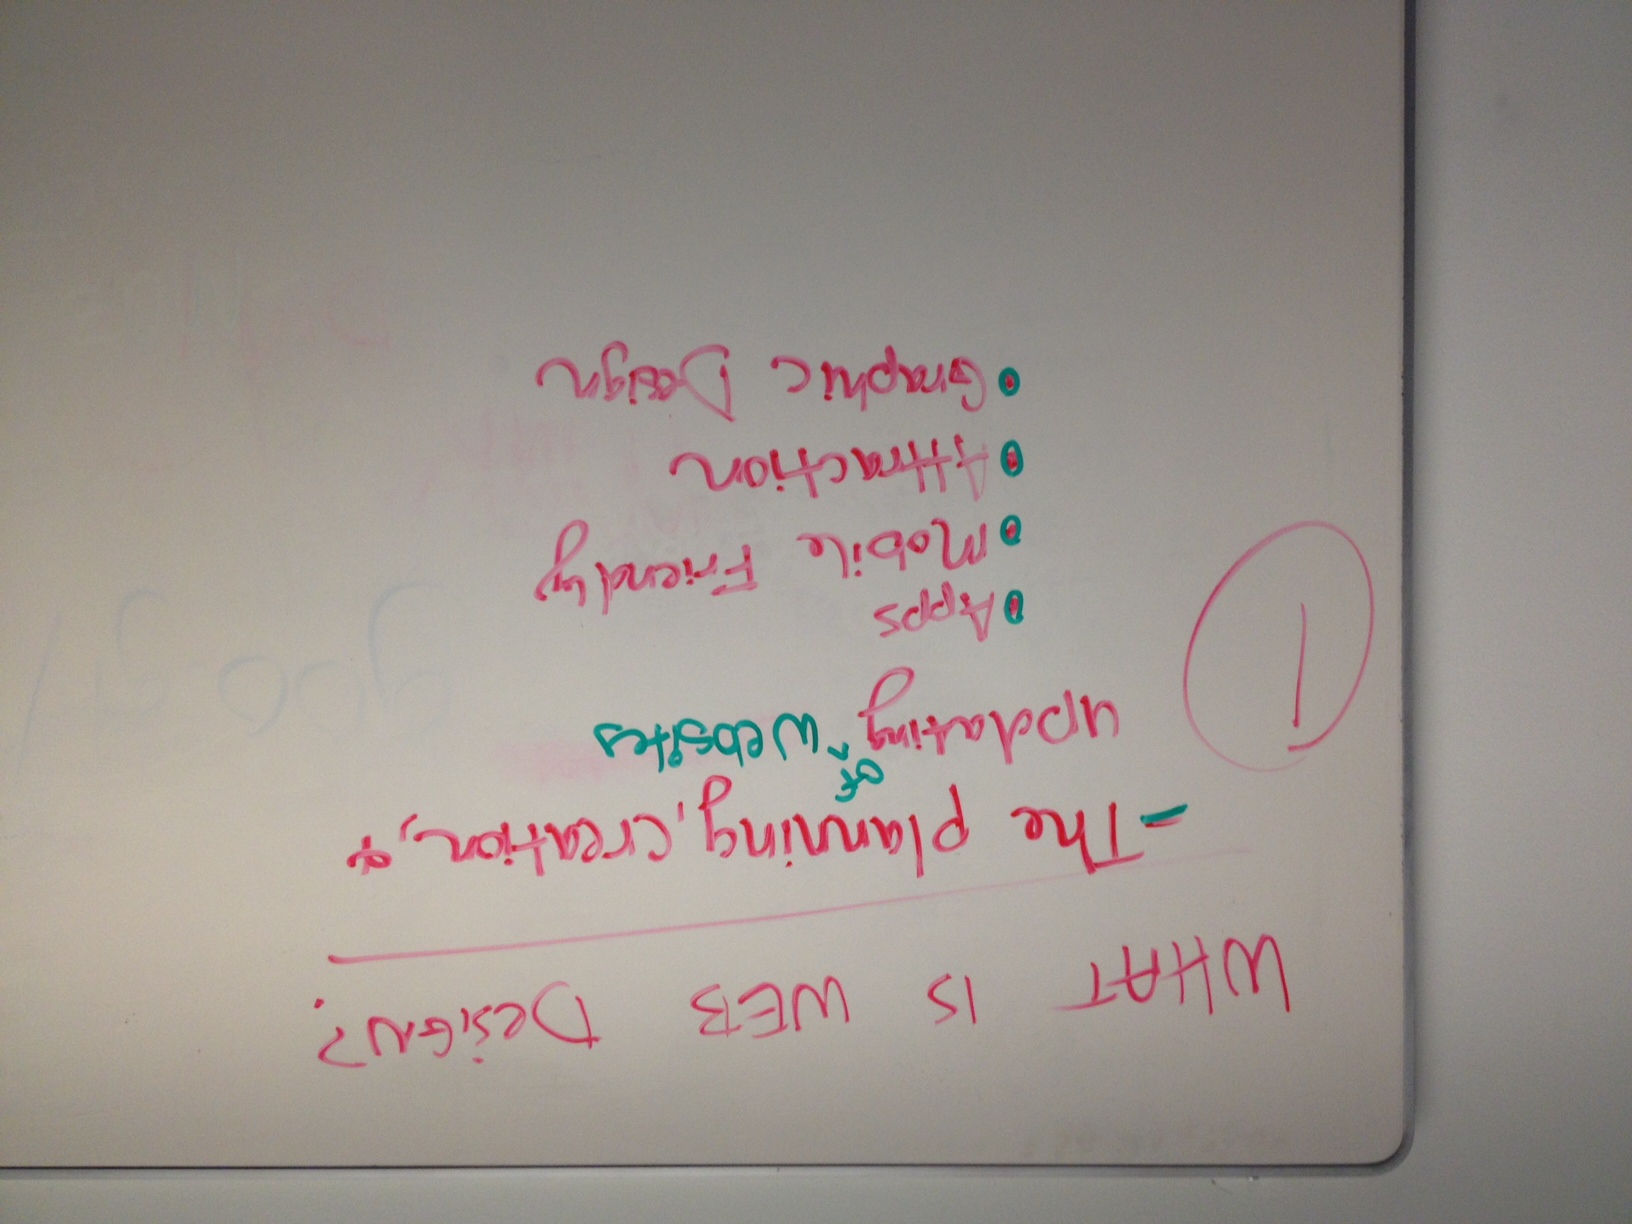 WHAT IS WEB DESiGN?
- The planning, creation, &
updating ^of Websites
1
• Apps
• Mobile Friendly
• Attraction
• Graphic Design